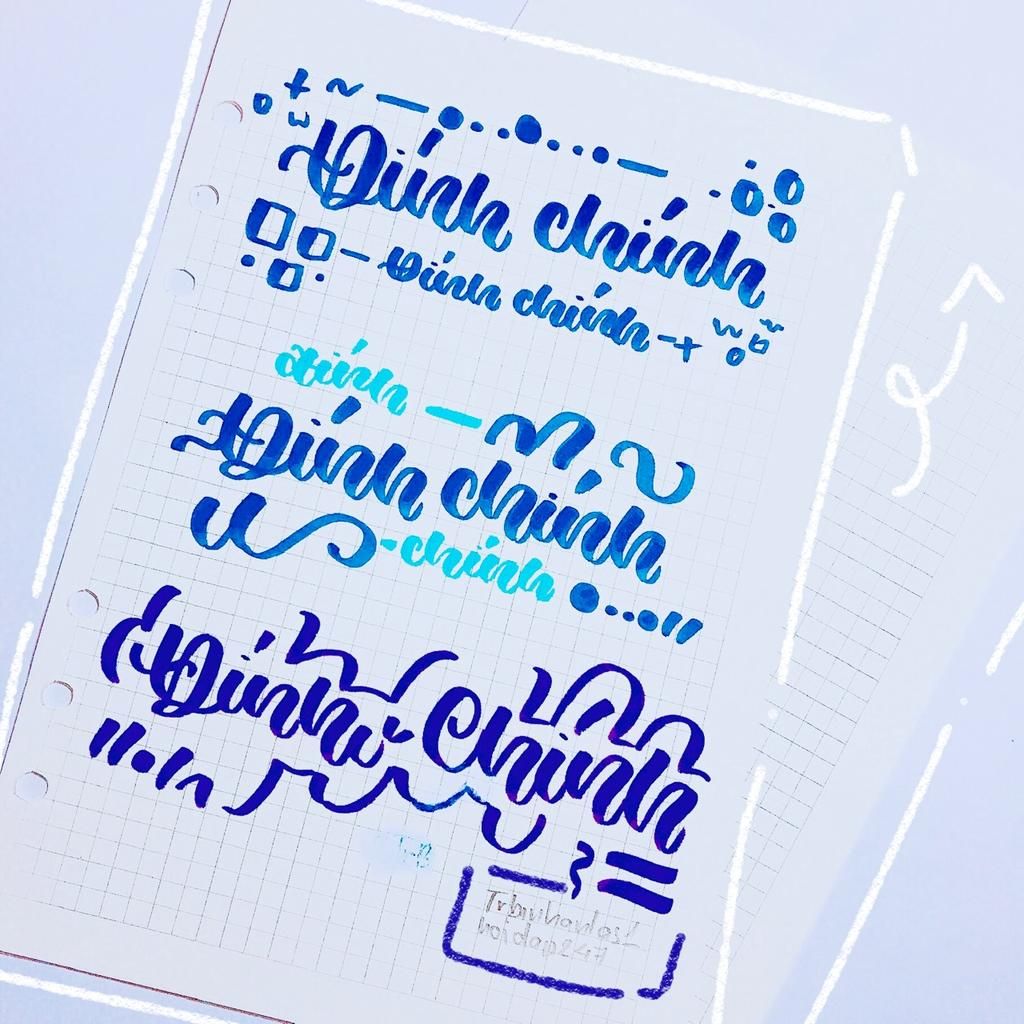 Đính chính
Đính chính
đính
Đính chính
chính
Đính Chính
hoidap247